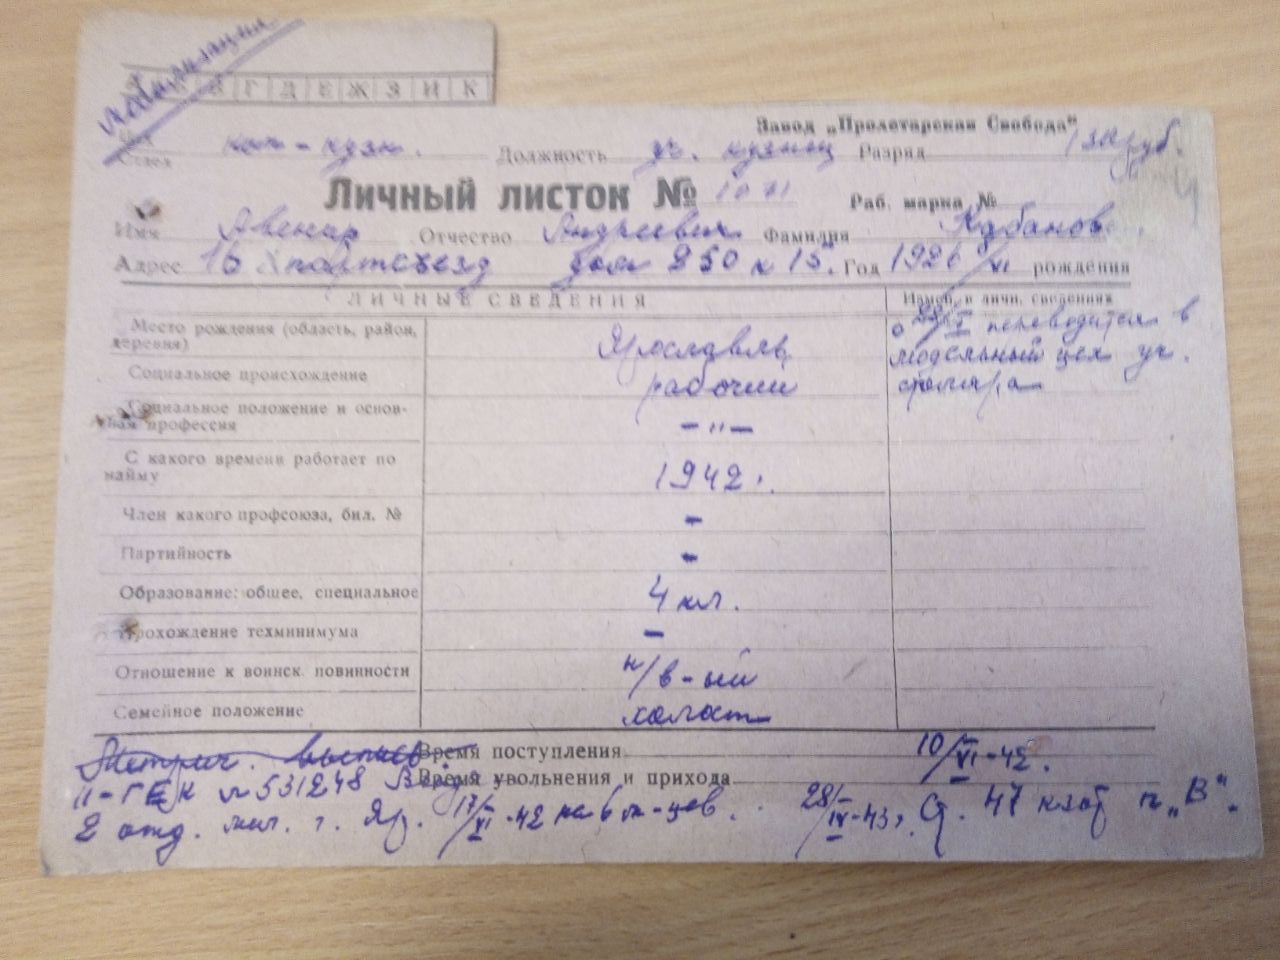 Мобилизация
В Г Д Е Ж З И К
Завод „Пролетарская Свобода"
Отдел кот-кузн. Должность уч. кузнец Разряд руб.
Личный листок № Раб. марка №
Имя Авенир Отчество Андреевич Фамилия Кубанов
Адрес 16 партсъезд дом 250 к 15. Год 1926/VI рождения
ЛИЧНЫЕ СВЕДЕНИЯ Измен. в личн. сведениях
Место рождения (область, район, деревня) Ярославль
с 22/I переводится в
модельный цех уч.
столяра
Социальное происхождение рабочий
Социальное положение и основная профессия –"–
С какого времени работает по найму 1942.
Член какого профсоюза, бил. № -
Партийность -
Образование: общее, специальное 4 кл.
Прохождение техминимума -
Отношение к воинск. повинности н/в-ый
Семейное положение холост
Метрич. выпись Время поступления 10/VI-42.
№ 531248 Время увольнения и прихода
2 отд. мил. г. Яр. 17/VI-42 28/IV-43г. 47 п „В".